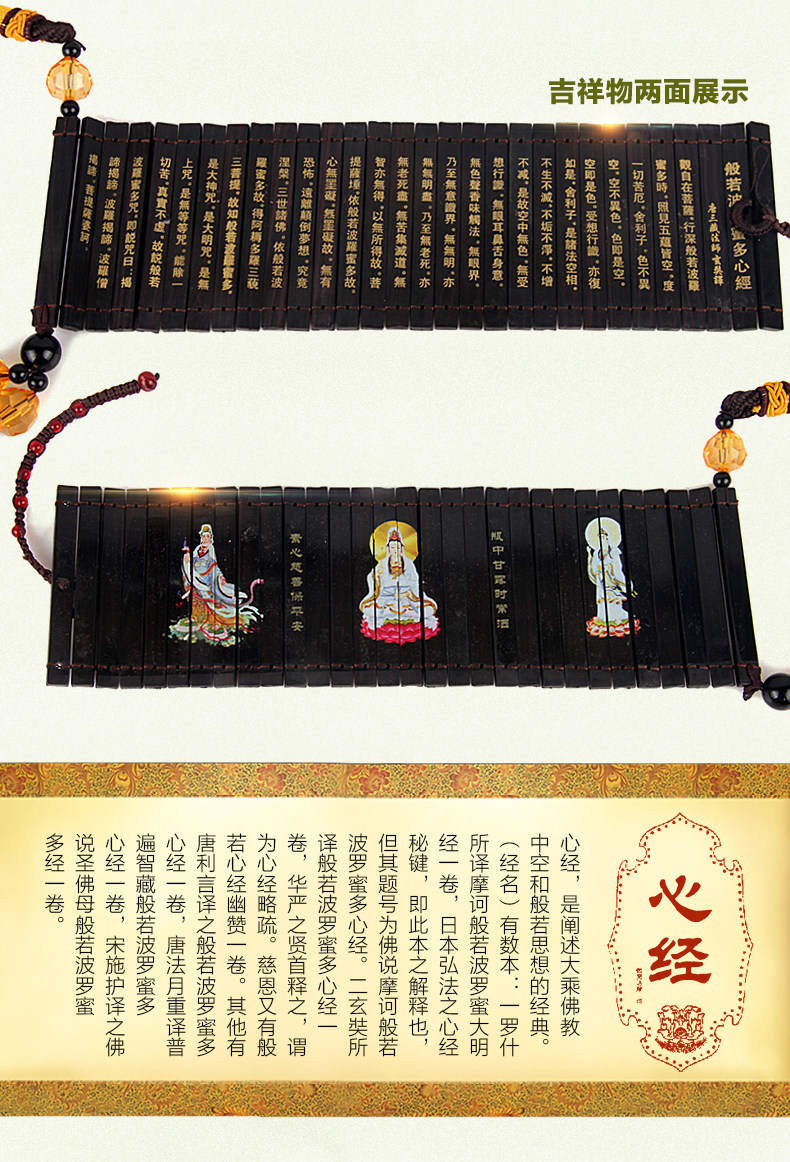 吉祥物两面展示
般若波蜜多心經
唐三藏法師玄奘譯
觀自在菩薩。行深般若波羅
蜜多時。照見五蘊皆空。度
一切苦厄。舍利子。色不異
空。空不異色。色即是空。
空即是色。受想行識。亦復
如是。舍利子。是諸法空相。
不生不滅。不垢不淨。不增
不減。是故空中無色。無受
想行識。無眼耳鼻舌身意。
無色聲香味觸法。無眼界。
乃至無意識界。無無明。亦
無無明盡。乃至無老死。亦
無老死盡。無苦集滅道。無
智亦無得。以無所得故。菩
提薩埵。依般若波羅蜜多故。
心無罣礙。無罣礙故。無有
恐怖。遠離顛倒夢想。究竟
涅槃。三世諸佛。依般若波
羅蜜多故。得阿耨多羅三藐
三菩提。故知般若波羅蜜多。
是大神咒。是大明咒。是無
上咒。是無等等咒。能除一
切苦。真實不虛。故說般若
波羅蜜多咒。即說咒曰：揭
諦揭諦。波羅揭諦。波羅僧
揭諦。菩提薩婆訶。
瓶中甘露时常洒
素心慈善保平安
心经
心经，是阐述大乘佛教
中空和般若思想的经典。
（经名）有数本：一罗什
所译摩诃般若波罗蜜大明
经一卷，日本弘法之心经
秘键，即此本之解释也，
但其题号为佛说摩诃般若
波罗蜜多心经。二玄奘所
译般若波罗蜜多心经一
卷，华严之贤首释之，谓
为心经略疏。慈恩又有般
若心经幽赞一卷。其他有
唐利言译之般若波罗蜜多
心经一卷，唐法月重译普
遍智藏般若波罗蜜多
心经一卷，宋施护译之佛
说圣佛母般若波罗蜜
多经一卷。